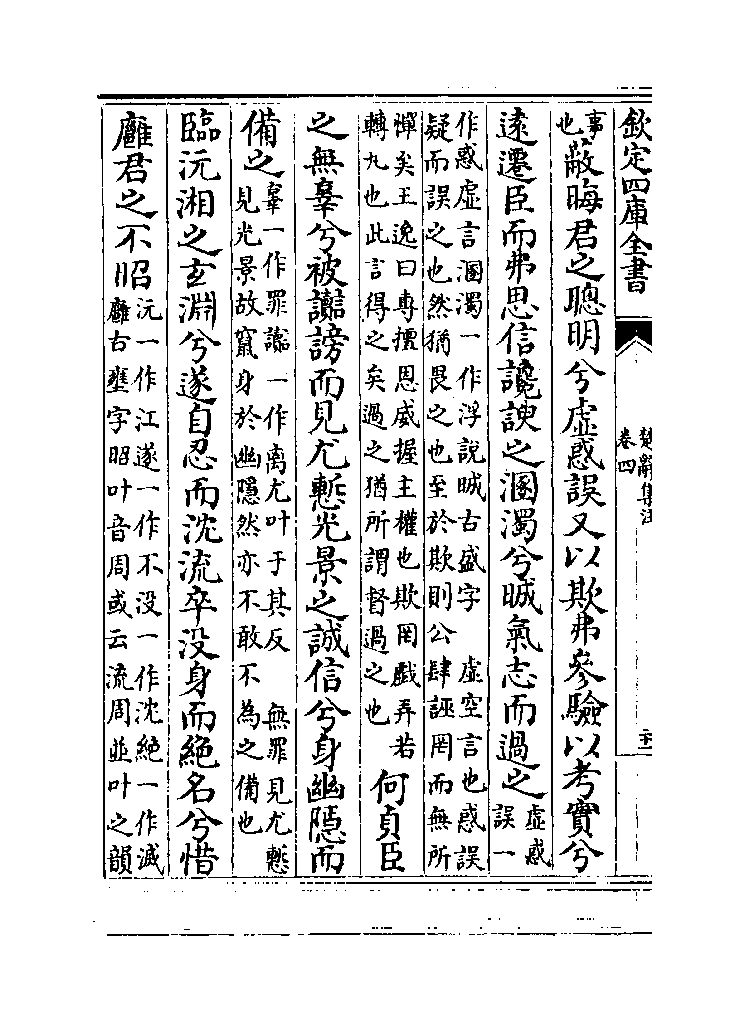 欽定四庫全書
楚辭集注
卷四
事也蔽晦君之聰明兮虛惑誤又以欺弗參驗以考實兮
遠遷臣而弗思信讒諛之溷濁兮晠氣志而過之虛惑誤一
作惑虛言溷濁一作浮說晠古盛字 虛空言也惑誤
疑而誤之也然猶畏之也至於欺則公肆誣罔而無所
憚矣王逸曰專擅恩威握主權也欺罔戲弄若
轉丸也此言得之矣過之猶所謂督過之也 何貞臣
之無辠兮被讟謗而見尤慙光景之誠信兮身幽隱而
備之辠一作罪讟一作離尤叶于其反 無罪見尤慙
見光景故竄身於幽隱然亦不敢不為之備也
臨沅湘之玄淵兮遂自忍而沈流卒没身而絶名兮惜
廱君之不昭沅一作江遂一作不没一作沈絶一作滅
廱古壅字昭叶音周或云流周並叶之韻